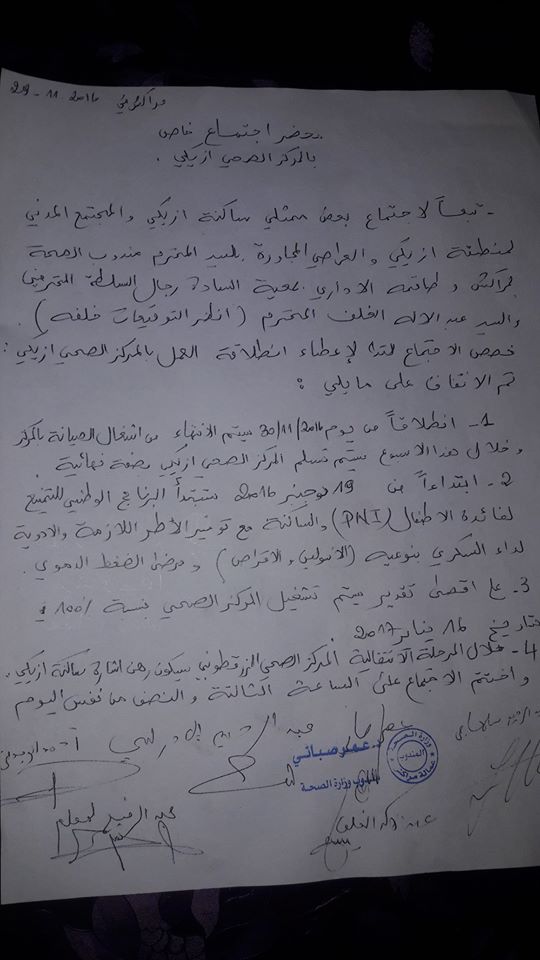 مراكش في 29 - 11 - 2016
محضر اجتماع خاص
بالمركز الصحي ازيكي .
- تبعاً لاجتماع بعض ممثلي ساكنة ازيكي والمجتمع المدني
لمنطقة ازيكي و المجاورة بالسيد المحترم مندوب الصحة
بمراكش و طاقمه الاداري بمعية السادة رجال السلطة المحترمين
والسيد عبد الاله الخلف المحترم ( انظر التوقيعات خلفه ) .
خصص الاجتماع لإعطاء انطلاقة العمل بالمركز الصحي ازيكي :
تم الاتفاق على مايلي :
1- انطلاقاً من يوم 30/11/2016 سيتم الانتهاء من اشغال الصيانة بالمركز
و خلال هذا الاسبوع سيتم تسلم المركز الصحي ازيكي بصفة نهائية .
2- ابتداءاً من 19 2016 ستبتدأ البرنامج الوطني للتمنيع
لفائدة الاطفال (PNI) والساكنة مع توفير الأطر اللازمة والادوية
لداء السكري بنوعيه (الأنسولين و الاقراص) و مرضى الضغط الدموي .
3- على اقصى تقدير سيتم تشغيل المركز الصحي بنسبة 100%
بتاريخ 16 يناير 2017 .
4- خلال المرحلة الانتقالية المركز الصحي الزرقطوني سيكون رهن اشارة ساكنة ازيكي .
و اختتم الاجتماع على الساعة الثالثة و النصف من نفس اليوم
مندوب وزارة الصحة
وزارة الصحة
المندوب
عمالة مراكش